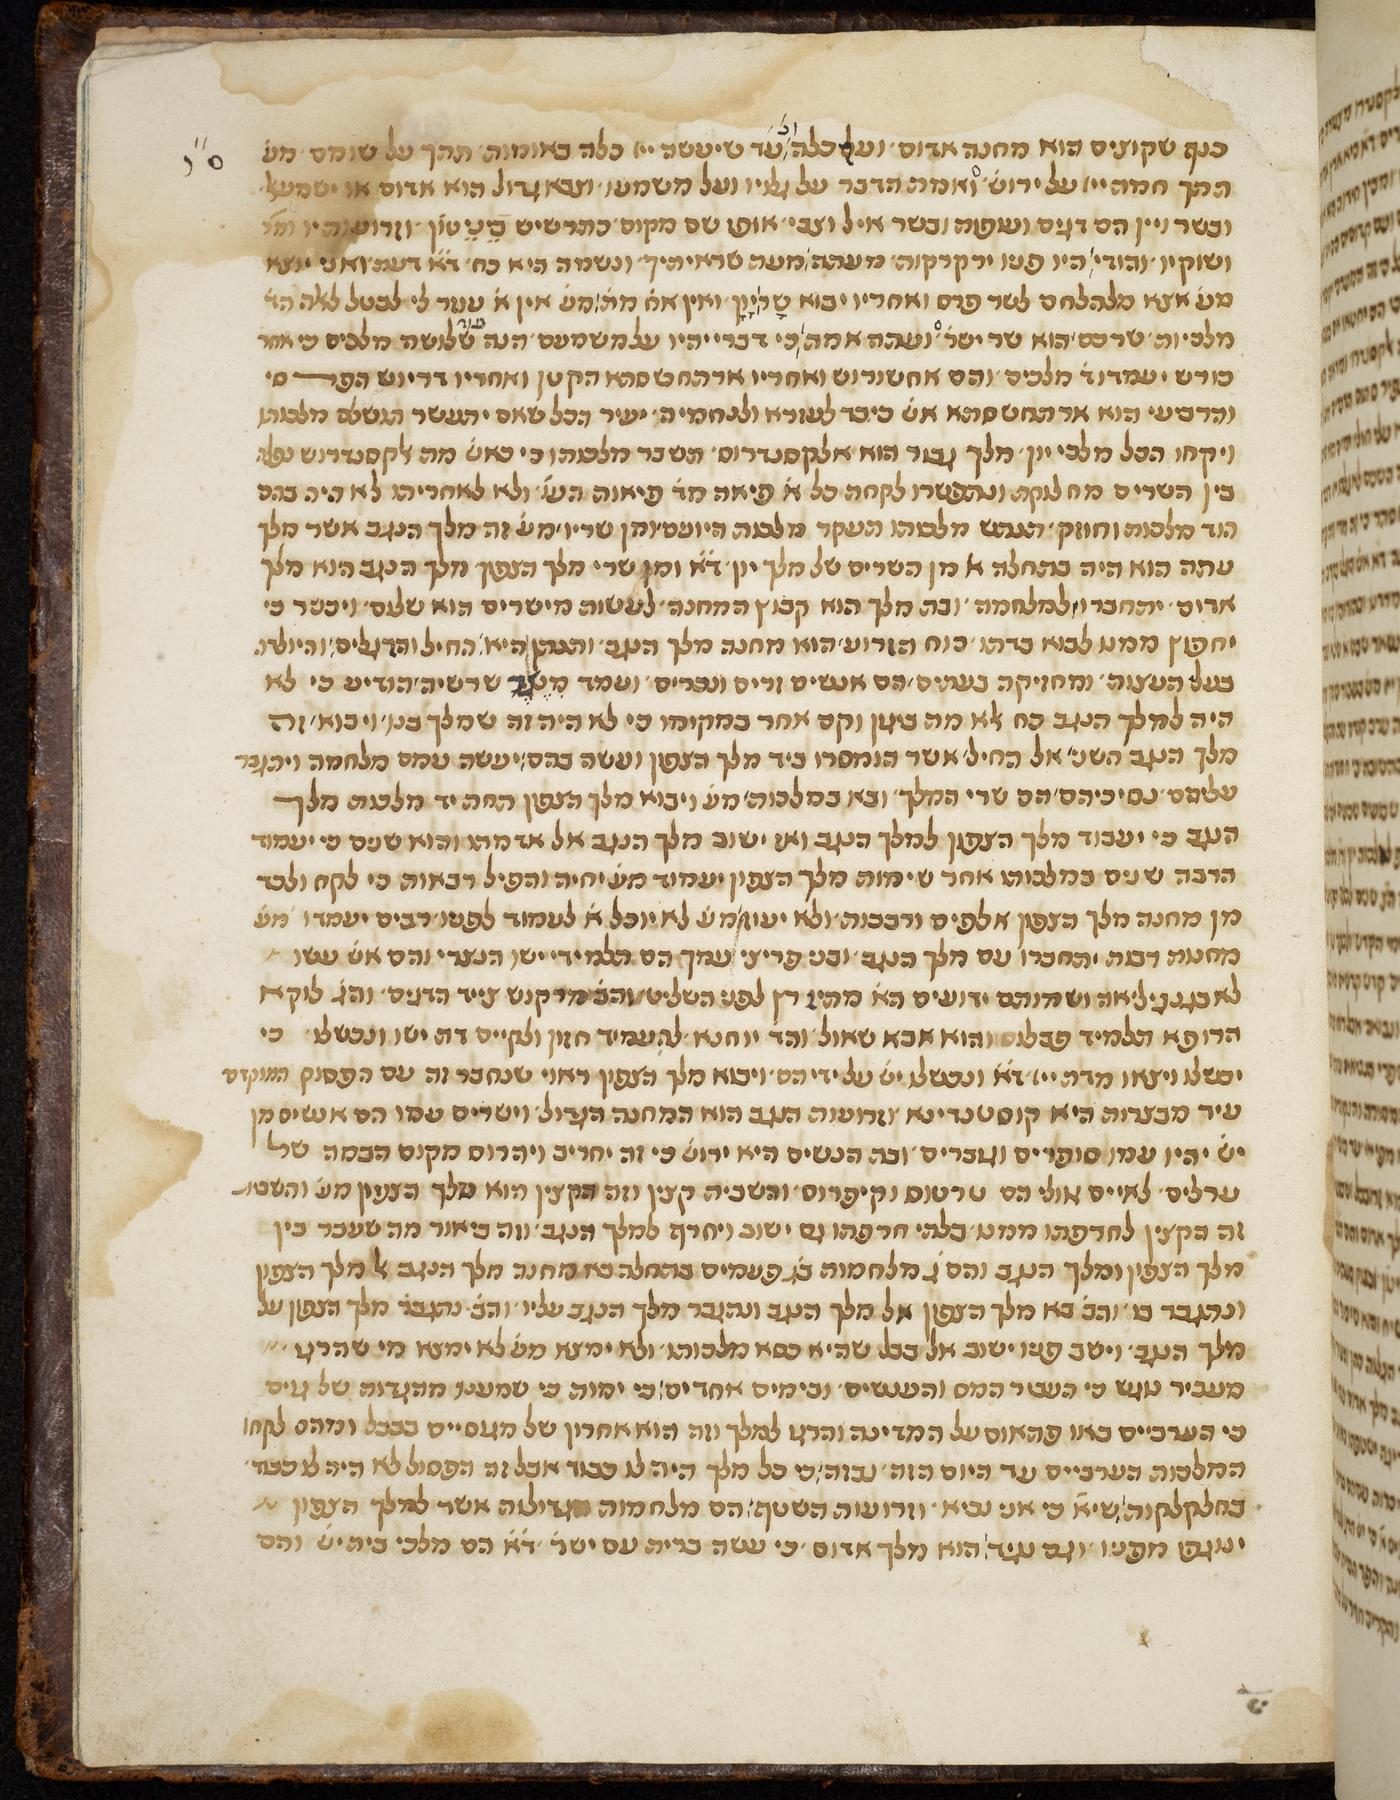 כנף שקוצים הוא מחנה אדום ועל כלה עד שיעשה ייי כלה באומות תהך על שומם מע
ס״ו
התך חמה ייי על ירוש ואמת הדבר על גליו ועל משמעו וצבא גדול הוא אדום או ישמעאל
ובשר ויין הם דגים ועופות ובשר איל וצבי אופז שם מקום כתרשיש וזרועותיו
ושוקיו והודי היו פניו ירקרקות מעתה מעת שראיתיך ונשמה היא כח דא דעת ואני יוצא
מע אצא מלהלחם לשר פרס ואחריו יבוא ואין אח מת מע אין א עוזר לי לבטל לאלה הד
מלכיות שרכם הוא שר ישר ועתה אמת כי דבריי היו על משמעם הנה עוד שלושה מלכים כי אחר
כורש יעמדו ד מלכים והם אחשורוש ואחריו ארתחשסתא הקטן ואחריו דריוש הפרסי
והרביעי הוא ארתחשסתא אש כיבד לעזרא ולנחמיה יעיר הכל שאם יתעשר תגשלם מלכותו
ויקחו הכל מלכי יון מלך גבור הוא אלקסנדרוס תשבר מלכותו כי כאש מת לקסנדרוש נפלה
בין השרים מחלוקת ונתפשרו לקחת כל א פיאה מד פיאות הע ולא לאחריתו לא היה בהם
הוד מלכות וחוזק תנתש מלכותו תעקר מלכות היונים ומן שריו מע זה מלך הנגב אשר מלך
עתה הוא היה בתחלה א מן השרים של מלך יון דא ומן שרי מלך הצפון מלך הנגב הוא מלך
ארום יתחברו למלחמה ובת מלך הוא קבוץ המחנה לעשות מישרים הוא שלום ויכשר כי
יחפוץ ממנו לבוא בדתו כוח הזרוע הוא מחנה מלך הנגב ותנתן היא החיל והרגלים והיולדו
בעל העצות ומחזיקה בעתים הם אנשים זרים ונכרים ועמד מנצר שרשיה הודיע כי לא
היה למלך הנגב כח לא מת ביגון וקם אחר במקומו כי לא היה זה שמלך בנו ויבוא זה
מלך הנגב השני אל החיל אשר הנמסרו ביד מלך הצפון ועשה בהם יעשה עמם מלחמה ויתגבר
עליהם נסיכיהם הם שרי המלך ובא במלכות מע ויבוא מלך הצפון תחת יד מלכות מלך
הנגב כי יעבוד מלך הצפון למלך הנגב ואז ישוב מלך הנגב אל אדמתו והוא שנים כי יעמוד
הרבה שנים במלכותו אחר שימות מלך הצפון יעמוד מע יחיה והפיל רבאות כי לקח ולכד
מן מחנה מלך הצפון אלפים ורבבות ולא יעוז מע לא יוכל א לעמוד לפניו רבים יעמדו מע
מחנות רבות יתחברו עם מלך הנגב ובני פריצי עמך הם תלמידי ישו הנצרי והם אש עשו
לאבנגיליאה ושמותם ידועים הא מתיו רץ לפני השליט והב מרקוש צייד הדגים והג לוקא
הרופא תלמיד פבלוס והוא אבא שאול והד יוחנא להעמיד חזון ולקיים דת ישו ונכשלו כי
יכשלו ויצאו מדת ייי דא ונכשלו יש על ידיהם ויבוא מלך הצפון ראוי שנחבר זה עם הפסוק המוקדם
עיר מבצרות היא קוסטנדינא וזרועות הנגב הוא המחנה הגדול וישרים עמו הם אנשים מן
יש יהיו עמו סופרים וגזברים ובת הנשים היא ירוש כי זה יחריב ויהרוס מקום הבמה של
ערלים לאיים אולי הם טרטוס וקיפרוס והשבית קצין וזה הקצין הוא מלך הצפון מע והשבית
זה הקצין לחרפתו ממנו בלתי חרפתו גם ישוב ויחרף למלך הנגב וזה ביאור מה שעבר בין
מלך הצפון ומלך הנגב והם ג מלחמות בג פעמים בתחלה בא מחנה מלך הנגב ל מלך הצפון
ונתגבר בו והב בא מלך הצפון אל מלך הנגב ונתגבר מלך הנגב עליו והג נתגבר מלך הצפון על
מלך הנגב וישב פניו ישוב אל בבל שהיא כסא מלכותו ולא ימצא מע לא ימצא מי שהרגו
מעביר נוגש כי העביר המס והעונשים ובימים אחדים כי ימות כי שמענו מהגדות של גוים
כי הערביים באו פתאום על המדינה והרגו למלך וזה הוא אחרון של מגוסיים בבבל ומהם לקחו
המלכות הערביים עד היום הזה נבזה כי כל מלך היה לו כבוד אבל זה הפסול לא היה לו כבוד
בחלקלקות שיא כי אני נביא וזרועות השטף הם מלחמות גדולות אשר למלך הצפון
ינגפו מפניו וגם נגיד הוא מלך אדום כי עשה ברית עם ישר דא הם מלכי בית יש והם